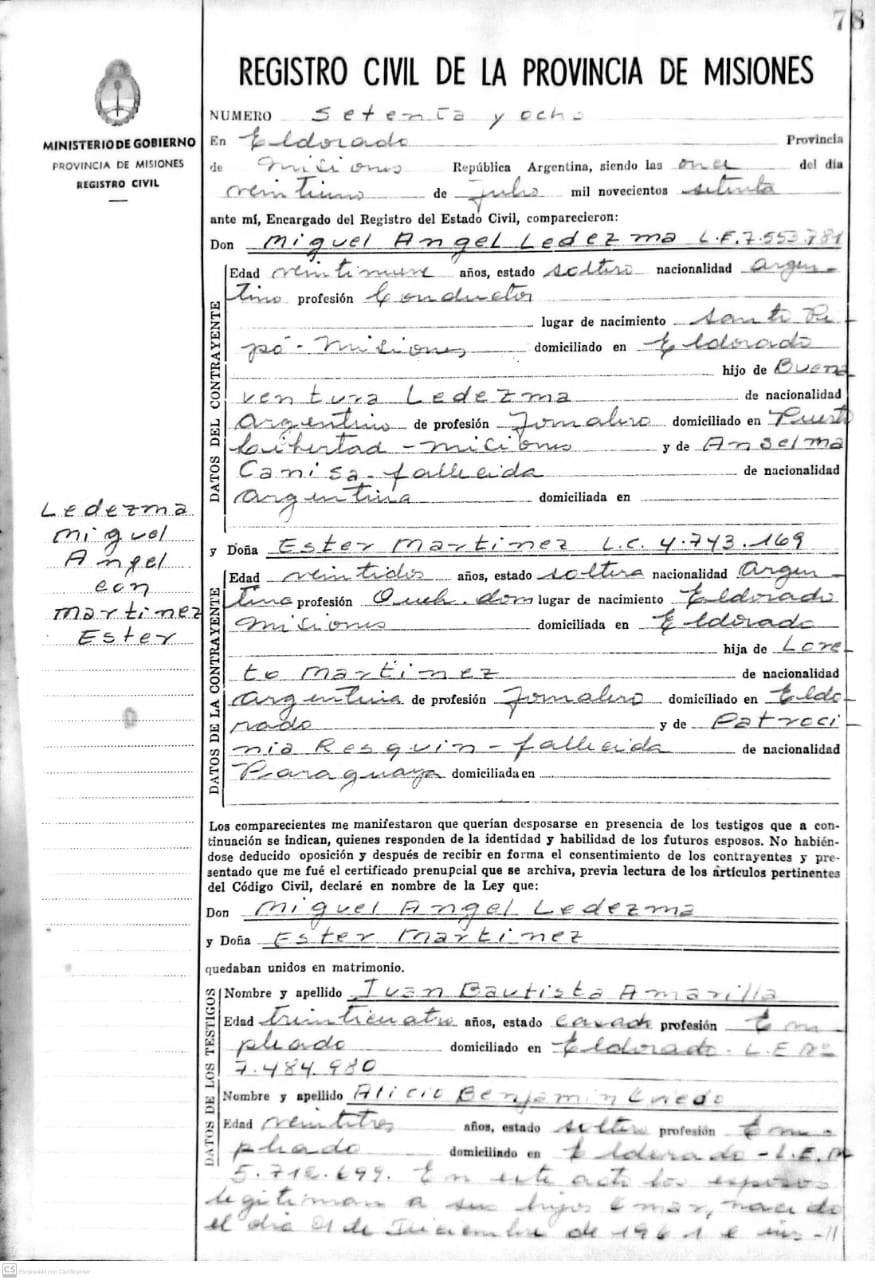 78
REGISTRO CIVIL DE LA PROVINCIA DE MISIONES
MINISTERIO DE GOBIERNO
PROVINCIA DE MISIONES
REGISTRO CIVIL
NUMERO setenta y ocho
En Eldorado Provincia
de Misiones República Argentina, siendo las once del día
veintiuno de Julio mil novecientos setenta
ante mí, Encargado del Registro del Estado Civil, comparecieron:
Don Miguel Angel Ledezma L.E. 7.553.781
DATOS DEL CONTRAYENTE
Edad veintinueve años, estado soltero nacionalidad argen-
tino profesión Conductor
lugar de nacimiento Santo Pi-
pó - Misiones domiciliado en Eldorado
hijo de Buena
ventura Ledezma de nacionalidad
Argentino de profesión Jornalero domiciliado en Puerto
Libertad - Misiones y de Anselma
Canisa - fallecida de nacionalidad
argentina domiciliada en
Ledezma
Miguel
Angel
con
Martinez
Ester
y Doña Ester Martinez L.C. 4.743.169
DATOS DE LA CONTRAYENTE
Edad veintidos años, estado soltera nacionalidad Argen-
tina profesión Queh. dom lugar de nacimiento Eldorado
Misiones domiciliada en Eldorado
hija de Lore-
to Martinez de nacionalidad
argentina de profesión Jornalero domiciliado en Eldo-
rado y de Patroci-
nia Resquin - fallecida de nacionalidad
Paraguaya domiciliada en
Los comparecientes me manifestaron que querían desposarse en presencia de los testigos que a con-
tinuación se indican, quienes responden de la identidad y habilidad de los futuros esposos. No habién-
dose deducido oposición y después de recibir en forma el consentimiento de los contrayentes y pre-
sentado que me fué el certificado prenupcial que se archiva, previa lectura de los artículos pertinentes
del Código Civil, declaré en nombre de la Ley que:
Don Miguel Angel Ledezma
y Doña Ester Martinez
quedaban unidos en matrimonio.
DATOS DE LOS TESTIGOS
Nombre y apellido Juan Bautista Amarilla
Edad treinticuatro años, estado casado profesión Em-
pleado domiciliado en Eldorado. L.E Nº
7.484.980
Nombre y apellido Alicio Benjamin Oviedo
Edad veintitres años, estado soltero profesión Em-
pleado domiciliado en Eldorado - L.E. Nº
En este acto los esposos
legitiman a sus hijos Omar, nacido
el dia 21 de Diciembre de 1961 e
CS